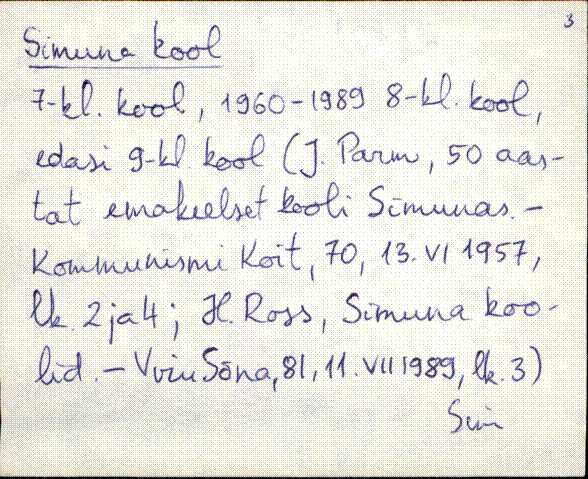 3
Simuna kool
7-kl. kool, 1960-1989 8-kl. kool,
edasi 9-kl. kool (J. Parm, 50 aas-
tat emakeelset kooli Simunas. -
Kommunismi Koit, 70, 13. VI 1957,
lk. 2 ja 4; H. Ross, Simuna koo-
lid. - Viru Sõna, 81, 11. VII 1989, lk. 3)
Sim